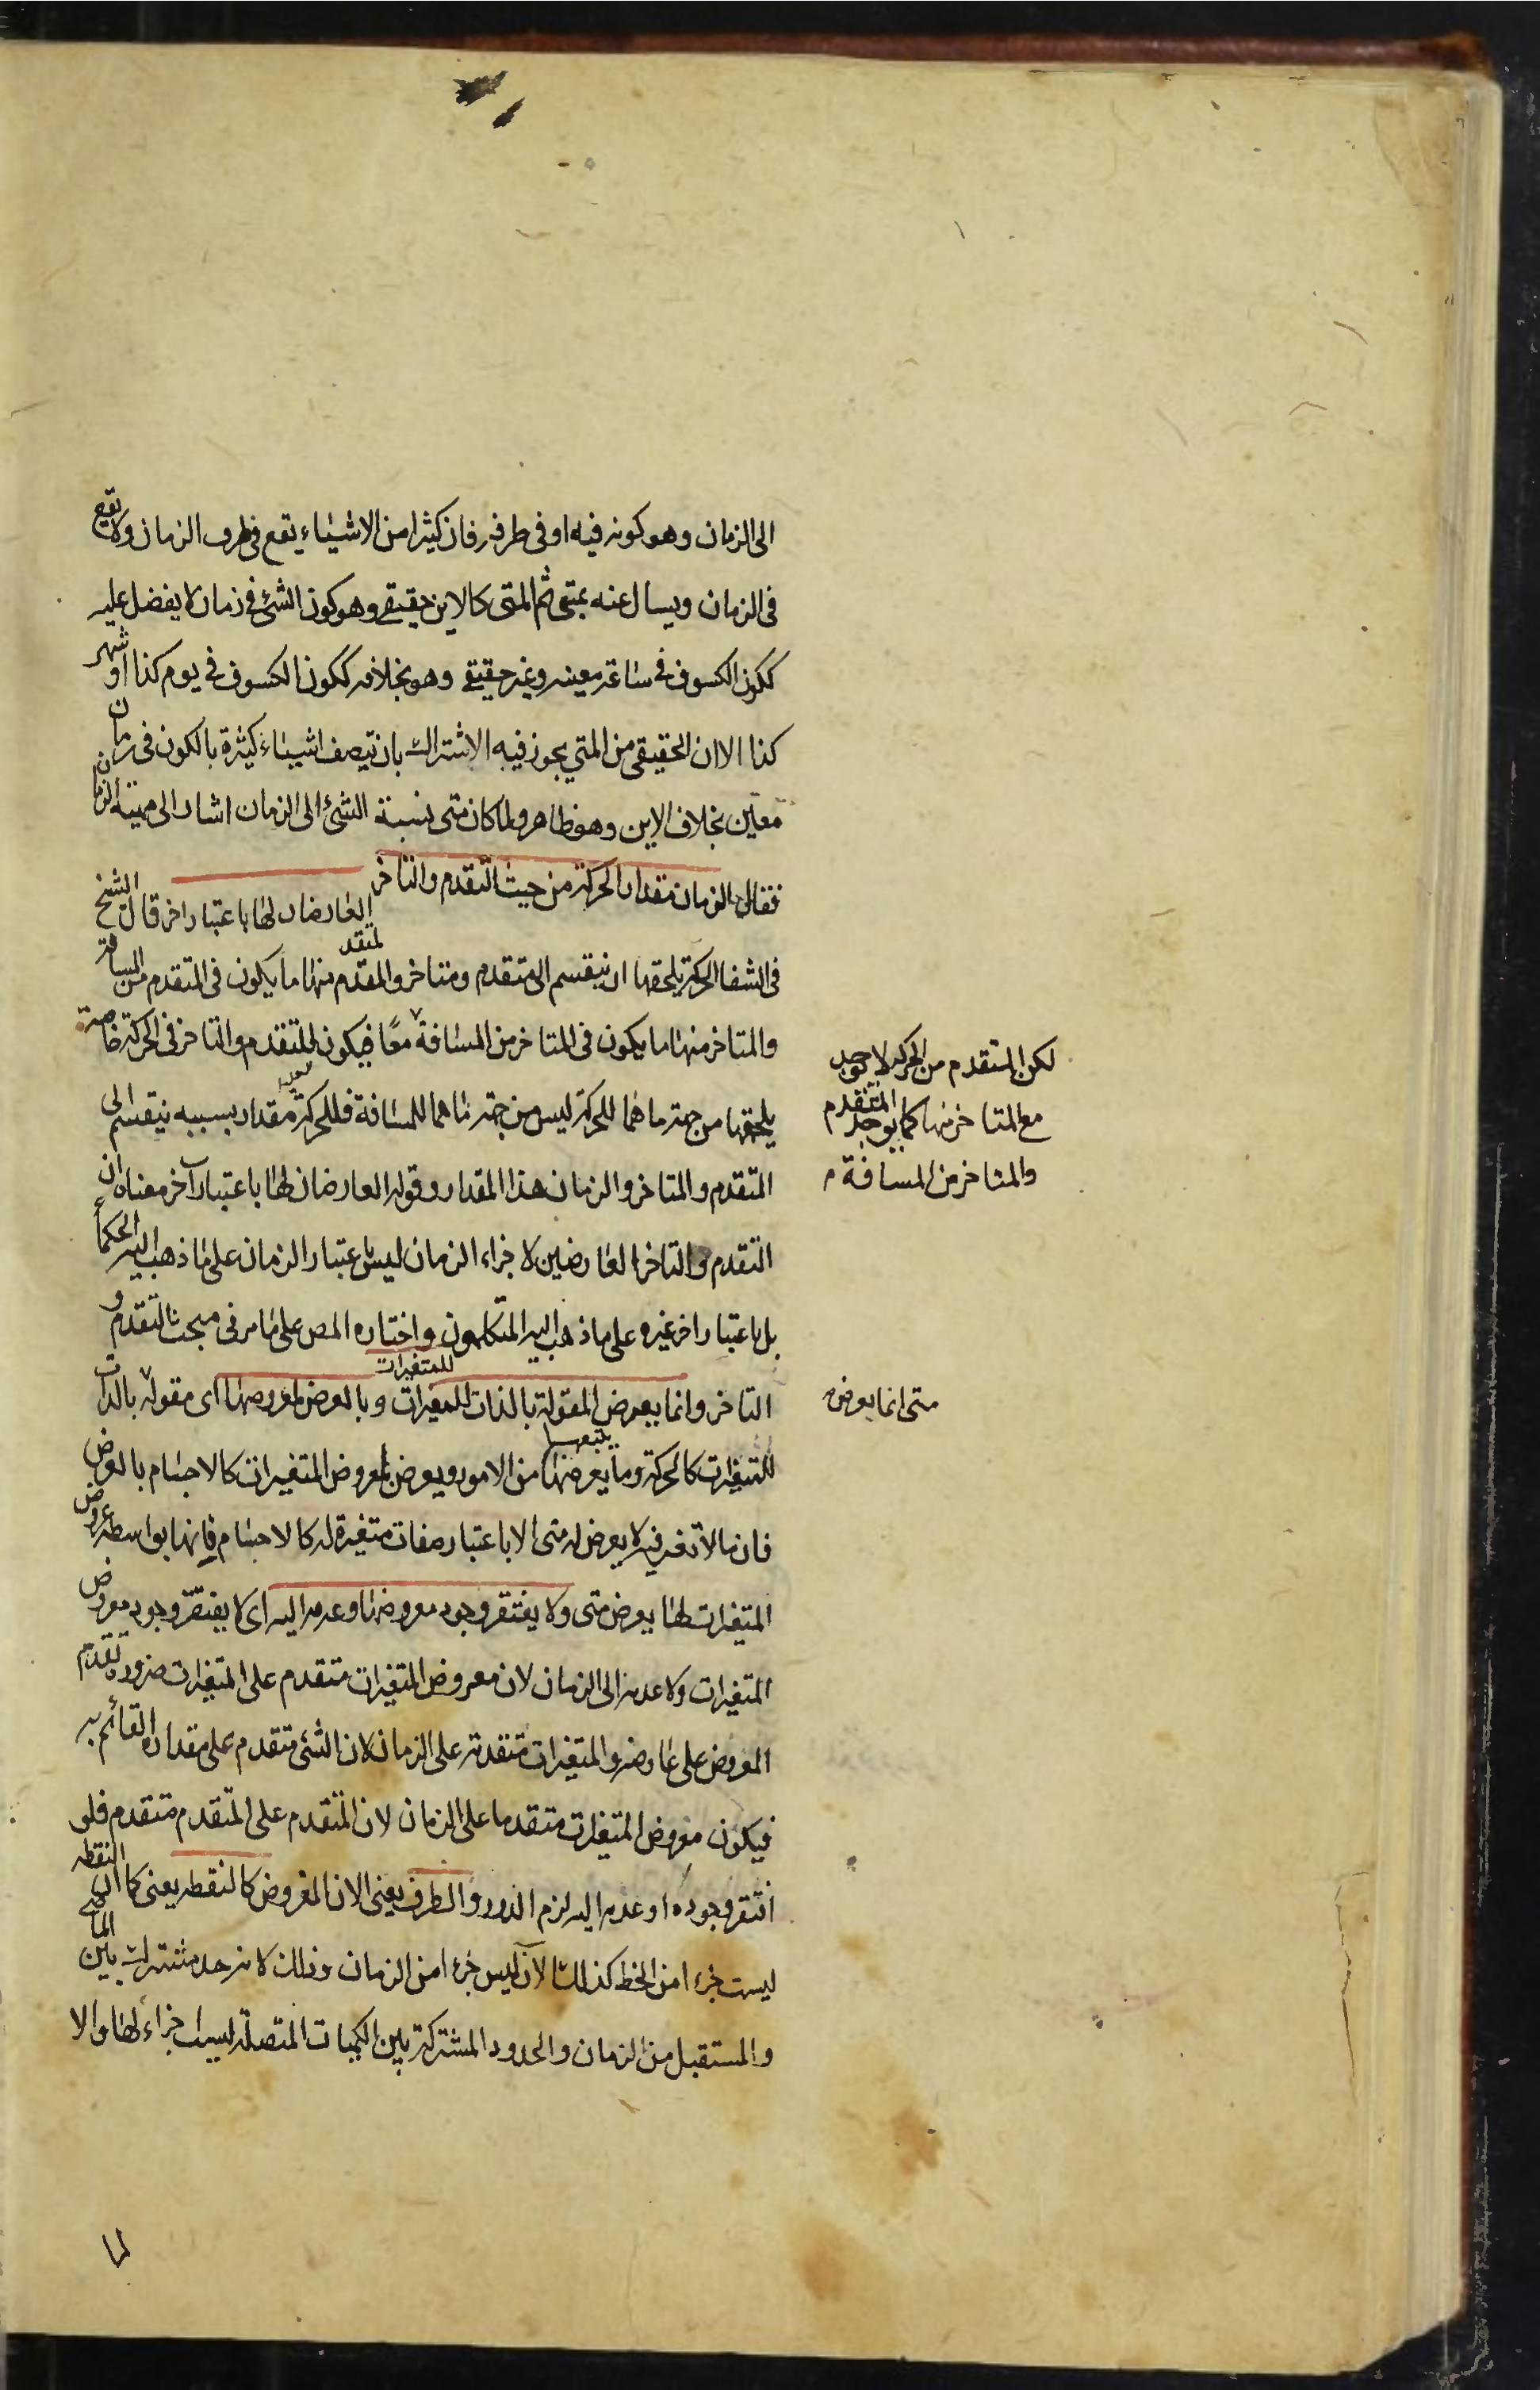 الى الزمان وهو كونه فيه او فى طرفه فان كثيرا من الاشياء يقع فى طرف الزمان ولا يقع
فى الزمان ويسال عنه بمتى ثم المتى كالاين حقيقى وهو كون الشئ فى زمان لا يفضل عليه
ككون الكسوف فى ساعة معينه وغير حقيقى وهو بخلافه ككون الكسوف فى يوم كذا او شهر
كذا الا ان الحقيقى من المتى يجوز فيه الاشتراك بان يتصف اشياء كثيرة بالكون فى زمان
معين بخلاف الاين وهو ظاهر ولما كان متى نسبة الشئ الى الزمان اشار الى مهية الزمان
فقال والزمان مقدار الحركة من حيث التقدم والتاخر العارضان لها باعتبار اخر قال الشيخ
فى الشفا الحركة يلحقها ان ينقسم الى متقدم ومتاخر والمتقدم منها ما يكون فى المتقدم من المسافة
والمتاخر منها ما يكون فى المتاخر من المسافة معًا فيكون للتقدم والتاخر فى الحركة خاصة
لكن المتقدم من الحركه لا يوجد
مع المتاخر منها كما يوجد المتقدم
والمتاخر من المسافة م
يلحقها من جهة ما هما للحركة ليس من جهة ما هما للمسافة فللحركة مقدار بسببه ينقسم الى
المتقدم والمتاخر والزمان هذا المقدار وقوله العارضان لها باعتبار آخر معناه ان
التقدم والتاخر العارضين لاجزاء الزمان ليس باعتبار الزمان على ما ذهب اليه الحكما
بل باعتبار اخر غيره على ما ذهب اليه المتكلمون واختاره المص على ما مر فى مبحث التقدم و
التاخر وانما يعرض المقولة بالذات للمتغيرات وبالعرض لمعروضها اى مقوله بالذات
متى انما يعرض
للمتغيرات كالحركة وما يتبعها من الامور ويعرض لمعروض المتغيرات كالاجسام بالعرض
فان ما لا تغير فيه لا يعرض له متى الا باعتبار صفات متغيرة له كالاجسام فانها بواسطه عروض
المتغيرات لها يعرض متى ولا يفتقر وجود معروضها وعدمه اليه اى لا يفتقر وجود معروض
المتغيرات ولا عدمه الى الزمان لان معروض المتغيرات متقدم على المتغيرات ضرورة تقدم
المعروض على عارضه والمتغيرات متقدمة على الزمان لان الشئ متقدم على مقداره القائم به
فيكون معروض المتغيرات متقدما على الزمان لان المتقدم على المتقدم متقدم فلو
افتقر وجوده او عدمه اليه لزم الدور والطرف يعنى الان المفروض كالنقطه يعنى كما ان النقطه
ليست جزءا من الخط كذلك الآن ليس جزءا من الزمان وذلك لانه حد مشترك بين الماضى
والمستقبل من الزمان والحدود المشتركة بين الكميات المتصلة ليست اجزاء لها والا
لما